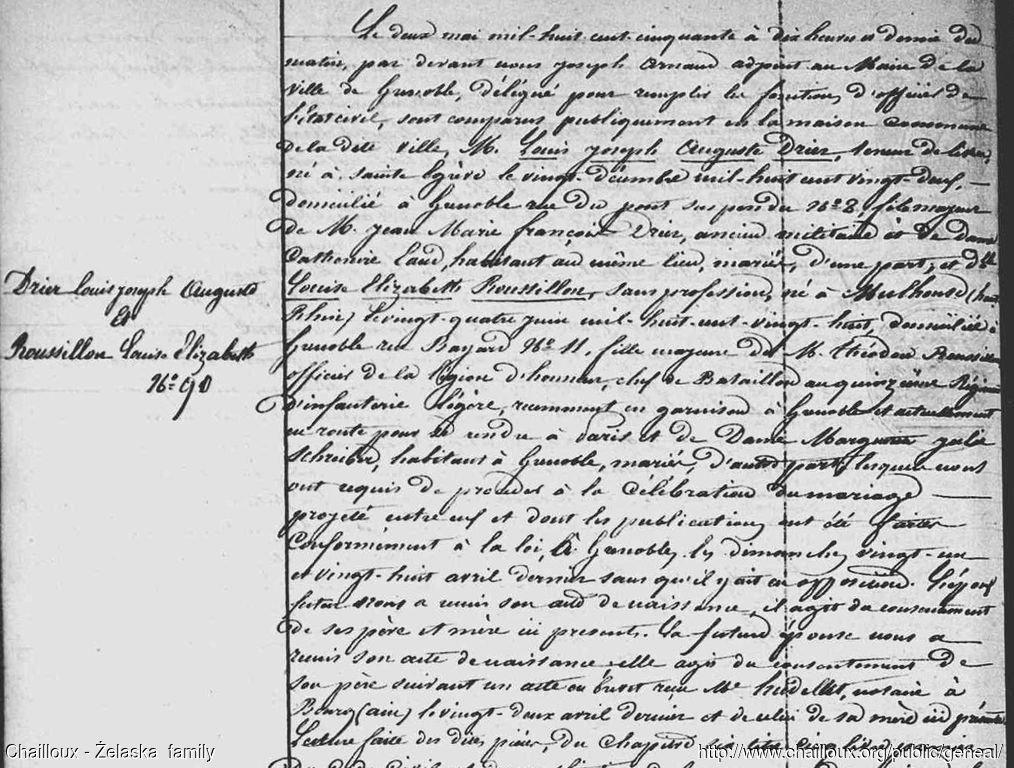 Drier Louis Joseph Auguste
Et
Roussillon Louise Elizabeth
N° 90
Le deux mai mil-huit cent cinquante à dix heures et demie du
matin, par devant nous Joseph Arnaud adjoint au Maire de la
ville de Grenoble, délégué pour remplir les fonctions d'officier de
l'état civil, sont comparus publiquement en la maison commune
de la dite ville, M. Louis Joseph Auguste Drier, teneur de livres
né à Sainte le vingt décembre mil-huit cent vingt-deux,
domicilié à Grenoble rue du pont suspendu N° 2, fils majeur
de M. Jean Marie françois Drier, ancien militaire et de dame
Laud, habitant au même lieu, mariés, d'une part, et Dlle
Louise Elizabeth Roussillon, sans profession, né à Mulhouse (haut
Rhin) le vingt-quatre juin mil-huit-cent-vingt-huit, domiciliée à
Grenoble rue Bayard N° 11, fille majeure de M. théodore Roussillon
officier de la légion d'honneur, chef de Bataillon au quinzième Régiment
d'infanterie légère, récemment en garnison à Grenoble et actuellement
en route pour se rendre à Paris et de Dame Marguerite julie
Schreiber, habitant à Grenoble, mariés, d'autre part, lesquels nous
ont requis de procéder à la célébration du mariage
projeté entre eux et dont les publications ont été faites
Conformément à la loi, à Grenoble, les dimanches vingt-un
et vingt-huit avril dernier sans qu'il y ait eu opposition. L'époux
futur nous a remis son acte de naissance, il agit du consentement
de ses père et mère ici présents. La future épouse nous a
remis son acte de naissance, elle agit du consentement de
son père suivant un acte en brevet reçu Me, notaire à
Bourg (ain) le vingt-deux avril dernier et de celui de sa mère ici présente
Lecture faite des dites pièces, du chapitre six
Chailloux - Želaska family
http://www.chailloux.org/public/geneal/